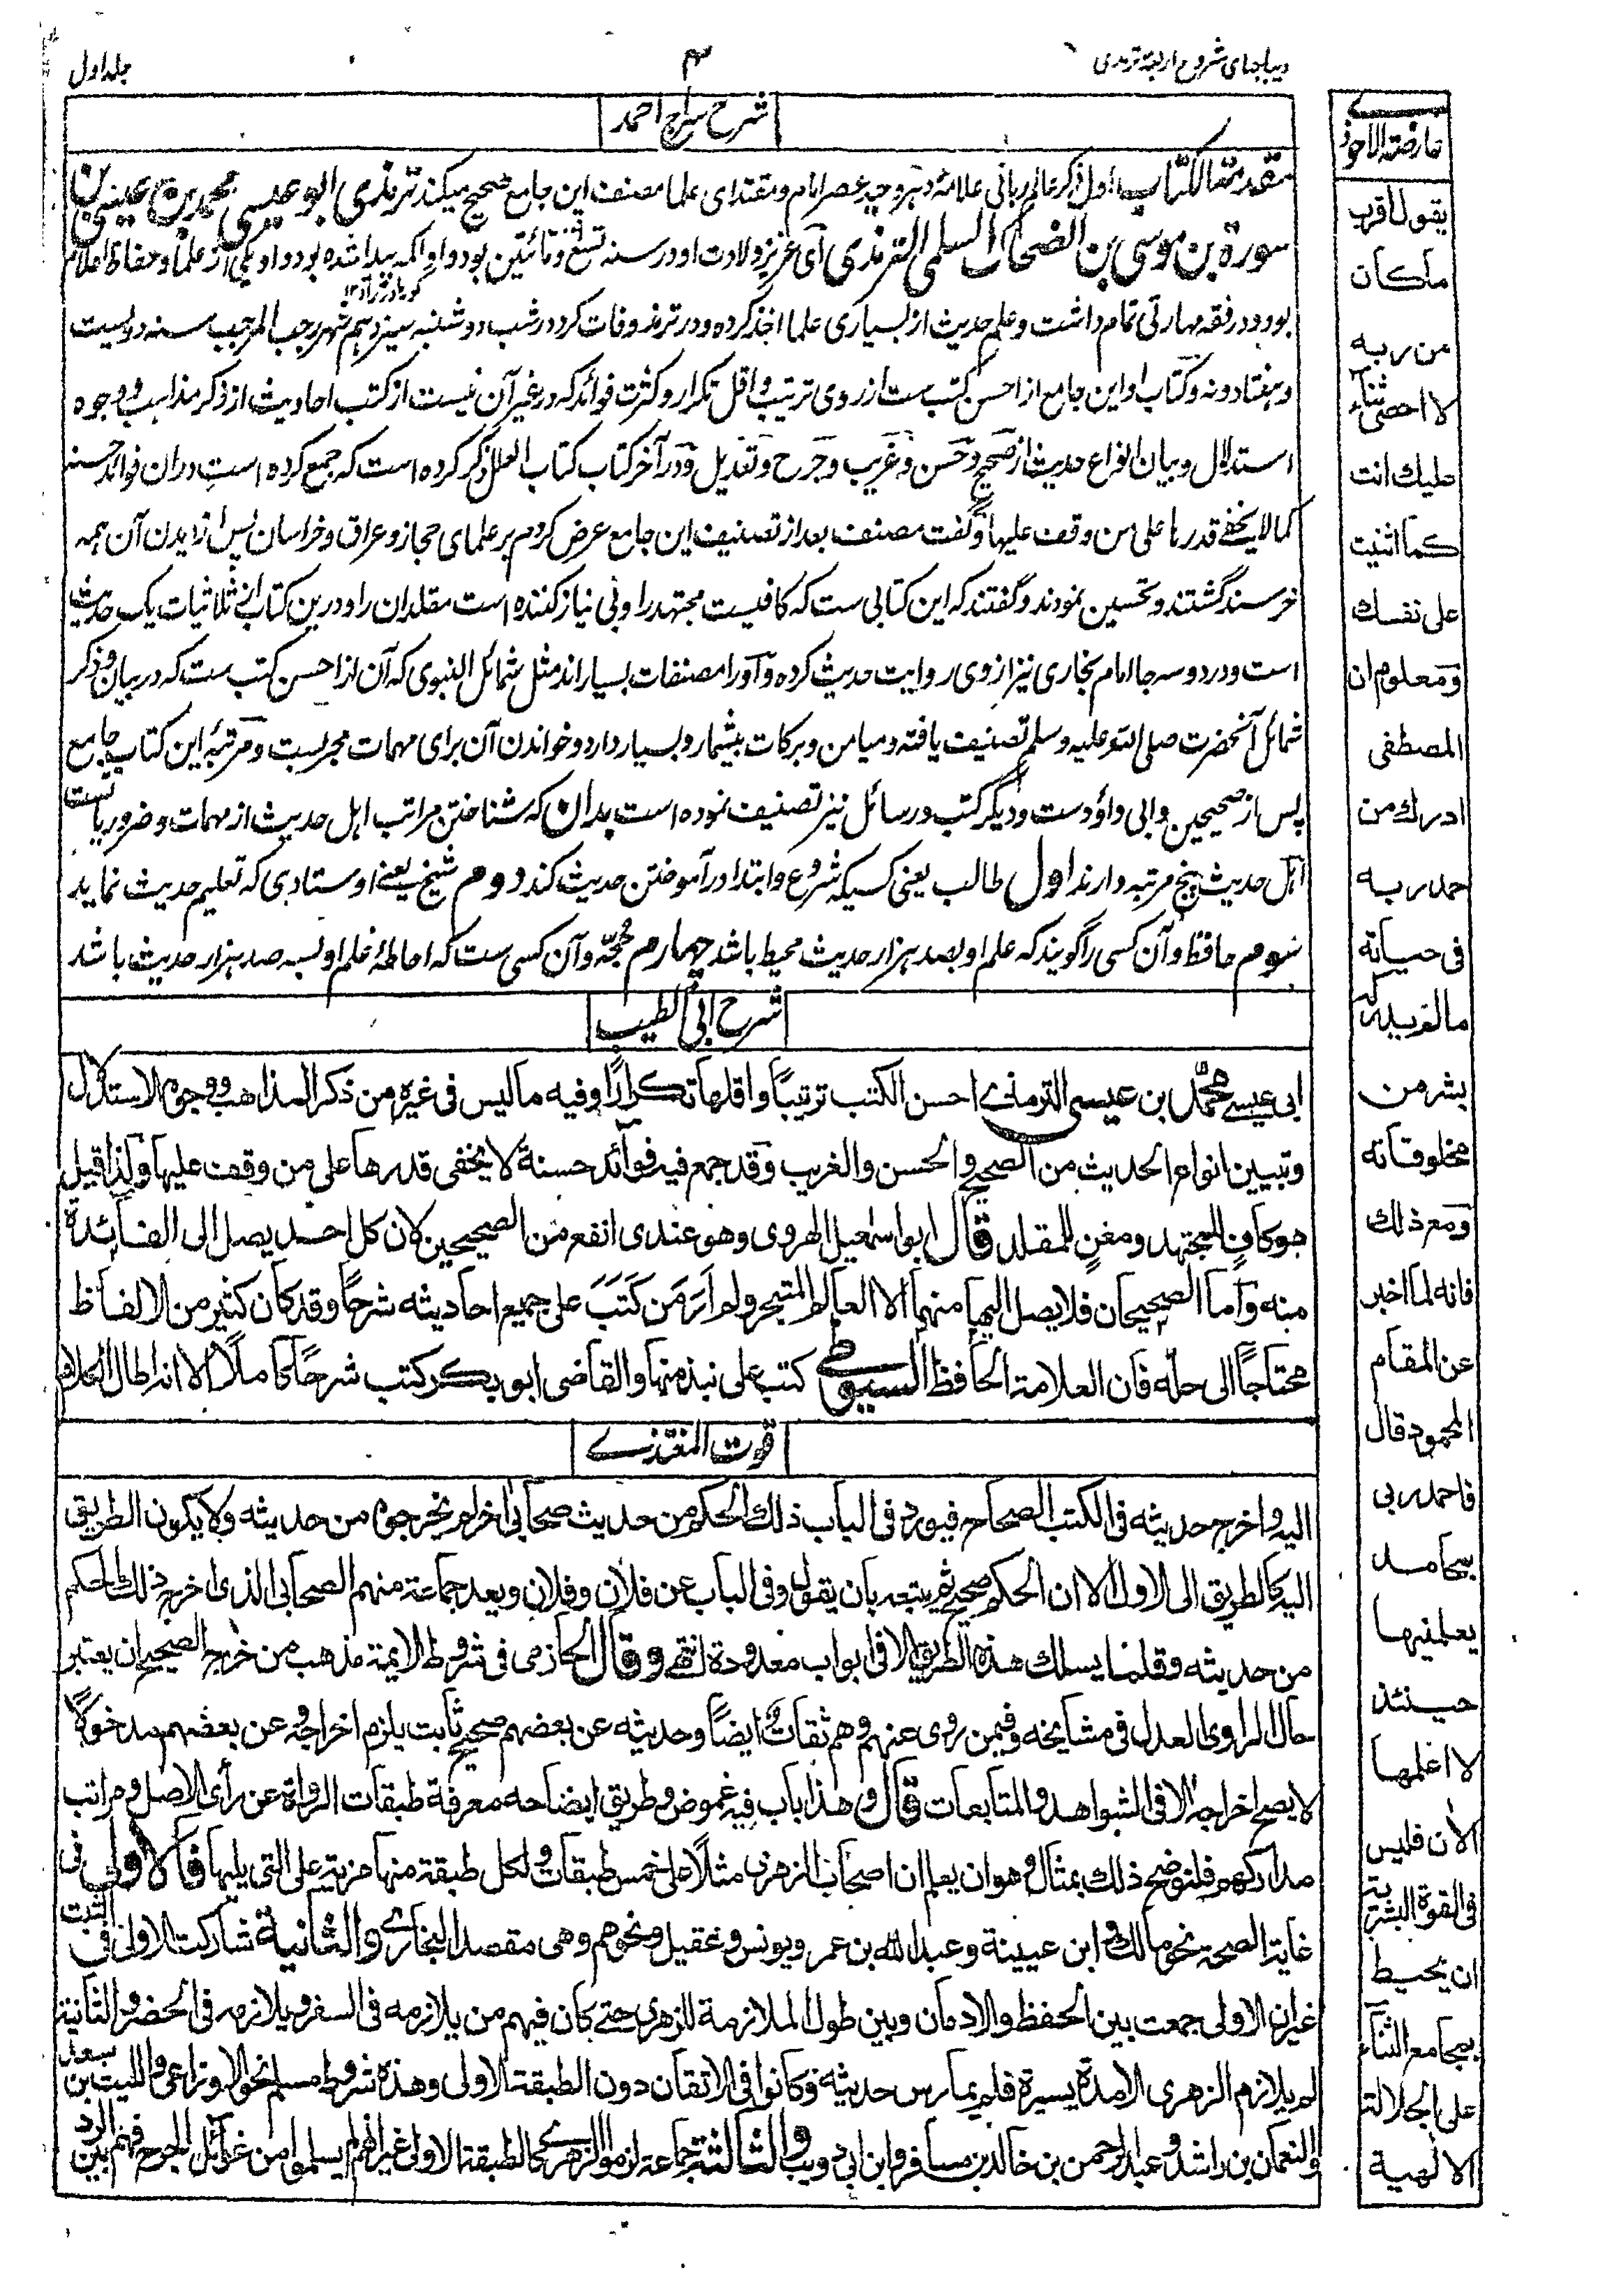 دیباچهای شروح اربعهٔ ترمذی
۴
جلد اول
شرح سراج احمد
مقدمة الکتاب اول ذکر عالم ربانی علامهٔ دهر وحید عصر امام و مقتدای علما مصنف این جامع صحیح میکند ترمذی ابو عیسی محمد بن عیسی بن
سورة بن موسی بن الضحاک السلمی الترمذی آی عزیز ولادت او در سنه تسع و مائتین بود و او اکمه پیدا شده بود و او یکی از علما و حفاظ اعلام
کور مادرزاد ۱۲
بود و در فقه مهارتی تمام داشت و علم حدیث از بسیاری علما اخذ کرده و در ترمذ وفات کرد در شب دوشنبه سیزدهم شهر رجب المرجب سنه دویست
و هفتاد و نه و کتاب او این جامع از احسن کتب ست از روی ترتیب و اقل تکرار و کثرت فوائد که در غیر آن نیست از کتب احادیث از ذکر مذاهب و وجوه
استدلال و بیان انواع حدیث از صحیح و حسن و غریب و جرح و تعدیل و در آخر کتاب کتاب العلل ذکر کرده است که جمع کرده است دران فوائد حسنه
کما لا یخفی قدرها علی من وقف علیها و گفت مصنف بعد از تصنیف این جامع عرض کردم بر علمای حجاز و عراق و خراسان پس از دیدن آن همه
خرسند گشتند و تحسین نمودند و گفتند که این کتابی ست که کافیست مجتهد را و بی نیاز کننده است مقلدان را و درین کتاب از ثلاثیات یک حدیث
است و در دو سه جا امام بخاری نیز از وی روایت حدیث کرده و او را مصنفات بسیار اند مثل شمائل النبوی که آن از احسن کتب ست که در بیان و ذکر
شمائل آنحضرت صلی الله علیه وسلم تصنیف یافته و میامن و برکات بیشمار و بسیار دارد و خواندن آن برای مهمات مجربست و مرتبهٔ این کتاب جامع
پس از صحیحین و ابی داؤد ست و دیگر کتب و رسائل نیز تصنیف نموده است بدان که شناختن مراتب اهل حدیث از مهمات و ضروریات ست
اهل حدیث پنج مرتبه دارند اول طالب یعنی کسیکه شروع و ابتدا در آموختن حدیث کند دوم شیخ یعنی اوستادی که تعلیم حدیث نماید
سوم حافظ و آن کسی را گویند که علم او بصد هزار حدیث محیط باشد چهارم حجة و آن کسی ست که احاطهٔ علم او بسه صد هزار حدیث باشد
شرح ابی الطیب
ابی عیسے محمد بن عیسی الترمذے احسن الکتب ترتیبًا و اقلها تکرارًا و فیه ما لیس فی غیره من ذکر المذاهب و وجوه الاستدلال
و تبیین انواع الحدیث من الصحیح و الحسن و الغریب و قد جمع فیه فوآئد حسنة لا یخفی قدرها علی من وقف علیها و لذا قیل
هو کافٍ للمجتهد و مغنٍ للمقلد قال ابو اسمعیل الهروی و هو عندی انفع من الصحیحین لان کل احد یصل الی الفائدة
منه و اما الصحیحان فلا یصل الیها منهما الا العالم المتبحر و لم ار من کتب علی جمیع احادیثه شرحًا و قد کان کثیر من الالفاظ
محتاجًا الی حلّه فان العلامة الحافظ السیوطی کتب علی نبذ منها و القاضی ابو بکر کتب شرحًا کاملًا الا انه اطال الکلام
قوت المغتذے
الیه و اخرج حدیثه فی الکتب الصحاح فیورد فی الباب ذلک الحکم من حدیث صحابی اخر لم یخرجوه من حدیثه و لا یکون الطریق
الیه کالطریق الی الاول الا ان الحکم صحیح ثم یتبعه بان یقول و فی الباب عن فلان و فلان و یعد جماعة منهم الصحابی الذی اخرج ذلک الحکم
من حدیثه و قلما یسلک هذه الطریق الا فی ابواب معدودة انتهے و قال الحازمی فی شروط الایمة مذهب من خرج الصحیح ان یعتبر
حال الراوی العدل فی مشایخه و فیمن روی عنهم و هم ثقات ایضًا و حدیثه عن بعضهم صحیح ثابت یلزم اخراجه و عن بعضهم مدخولا
لا یصح اخراجه الا فی الشواهد و المتابعات قال و هذا باب فیه غموض و طریق ایضاحه معرفة طبقات الرواة عن رأی الاصل و مراتب
مدارکهم فلنوضح ذلک بمثال و هو ان یعلم ان اصحاب الزهری مثلًا علی خمس طبقات و لکل طبقة منها مزیة علی التی یلیها فالاولی فی
غایة الصحة نحو مالک و ابن عیینة و عبد الله بن عمر و یونس و عقیل و نحوهم و هی مقصد البخارے و الثانیة شارکت الاولی فی التثبت
غیر ان الاولی جمعت بین الحفظ و الادمان و بین طول الملازمة للزهری حتے کان فیهم من یلازمه فی السفر و یلازمه فی الحضر و الثانیة
لم یلازم الزهری الا مدة یسیرة فلم یمارس حدیثه و کانوا فی الاتقان دون الطبقة الاولی و هذه شروط مسلم نحو الاوزاعی و اللیث بن سعد
و النعمان بن راشد و عبد الرحمن بن خالد بن مسافر و ابن ابی ذویب و الثالثة جماعة لزموا الزهرے کالطبقة الاولی غیر انهم لم یسلموا من غوائل الجرح فهم بین الرد
عارضة الاحوذے
یقول اقرب
ما کان
من ربه
لا احصی ثنآء
علیک انت
کما اثنیت
علی نفسک
و معلوم ان
المصطفی
ادرک من
حمد ربه
فی حیاته
ما لم یدرکه
بشر من
مخلوقاته
و مع ذلک
فانه لما اخبر
عن المقام
المحمود قال
فاحمد ربی
بمحامد
یعلمنیها
حینئذ
لا اعلمها
الآن فلیس
فی القوة البشریة
ان یحیط
بمجامع الثنآء
علی الجلالة
الالهیة